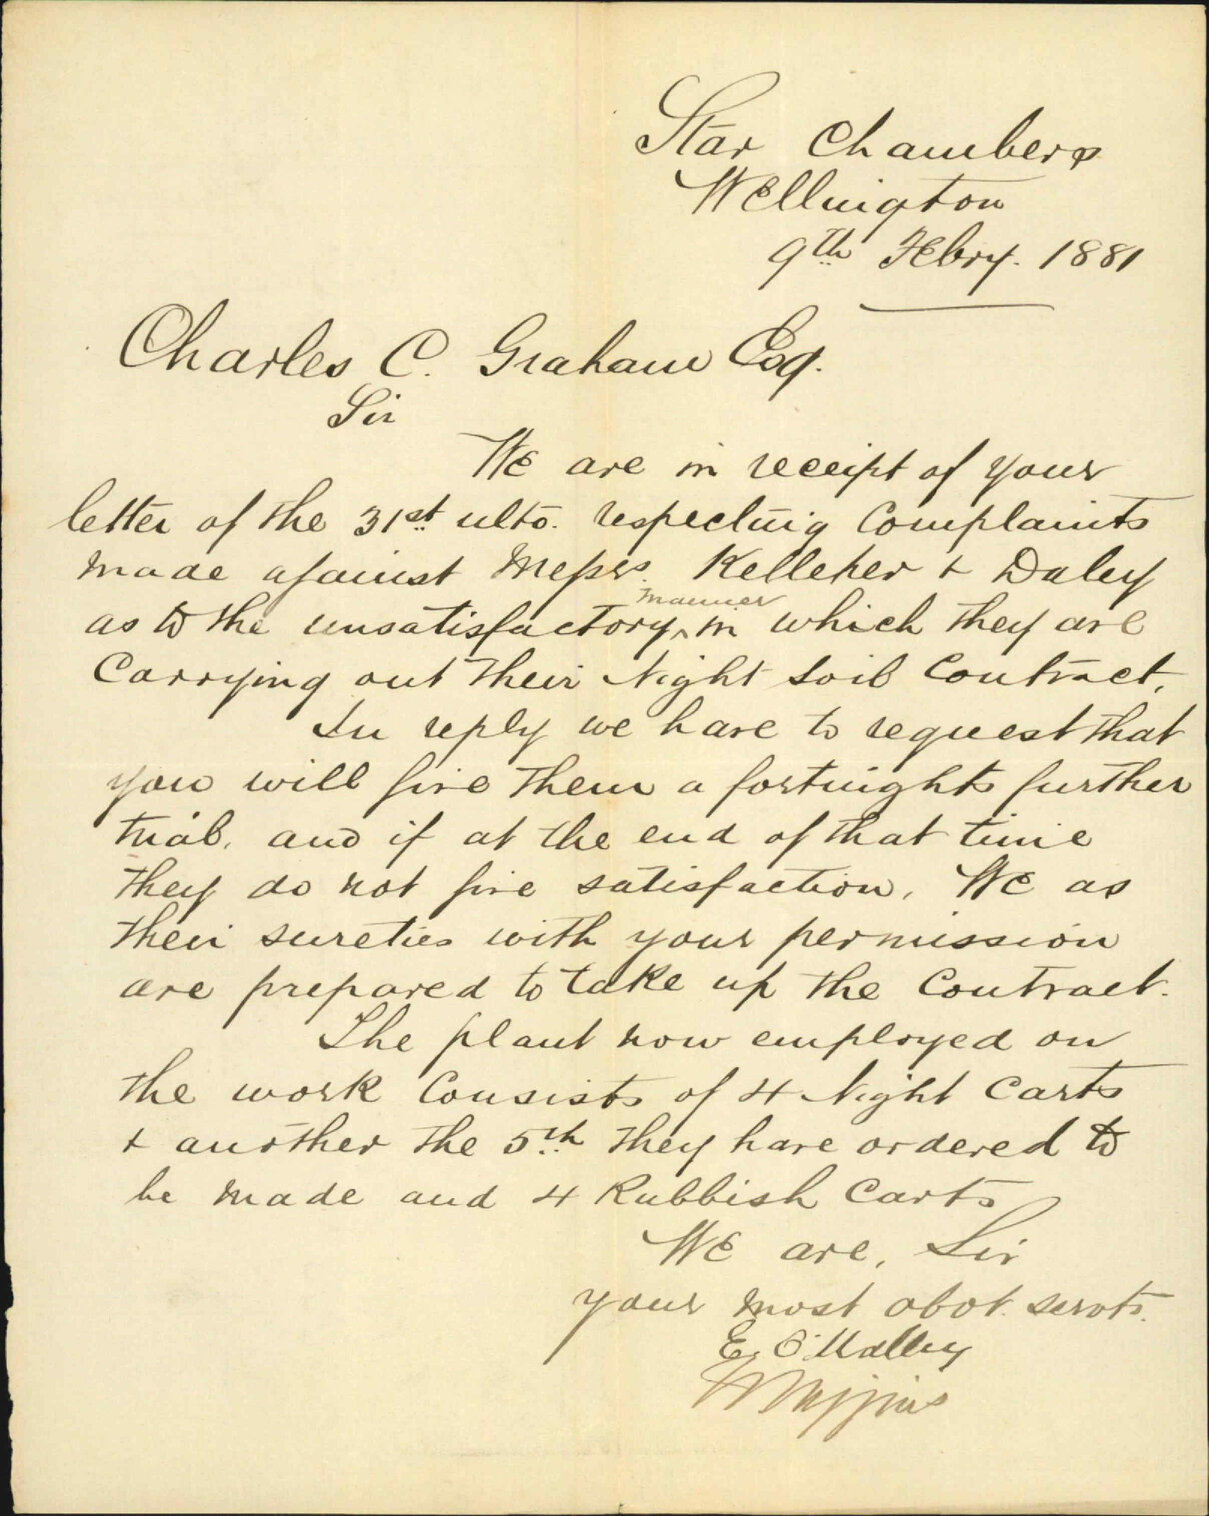 Star Chambers
Wellington
9th Febry. 1881
Charles C. Graham Esq.
Sir
We are in receipt of your
letter of the 31st ulto. respecting Complaints
made against Messrs. Kelleher & Daley
as to the unsatisfactory ^manner in which they are
Carrying out their Night Soil Contract.
In reply we have to request that
you will give them a fortnights further
trial, and if at the end of that time
they do not give satisfaction, We as
their sureties with your permission
are prepared to take up the Contract.
The plant now employed on
the work Consists of 4 Night Carts
& another the 5th they have ordered to
be made and 4 Rubbish Carts
We are, Sir
your most obdt. servts.
E. O'Malley